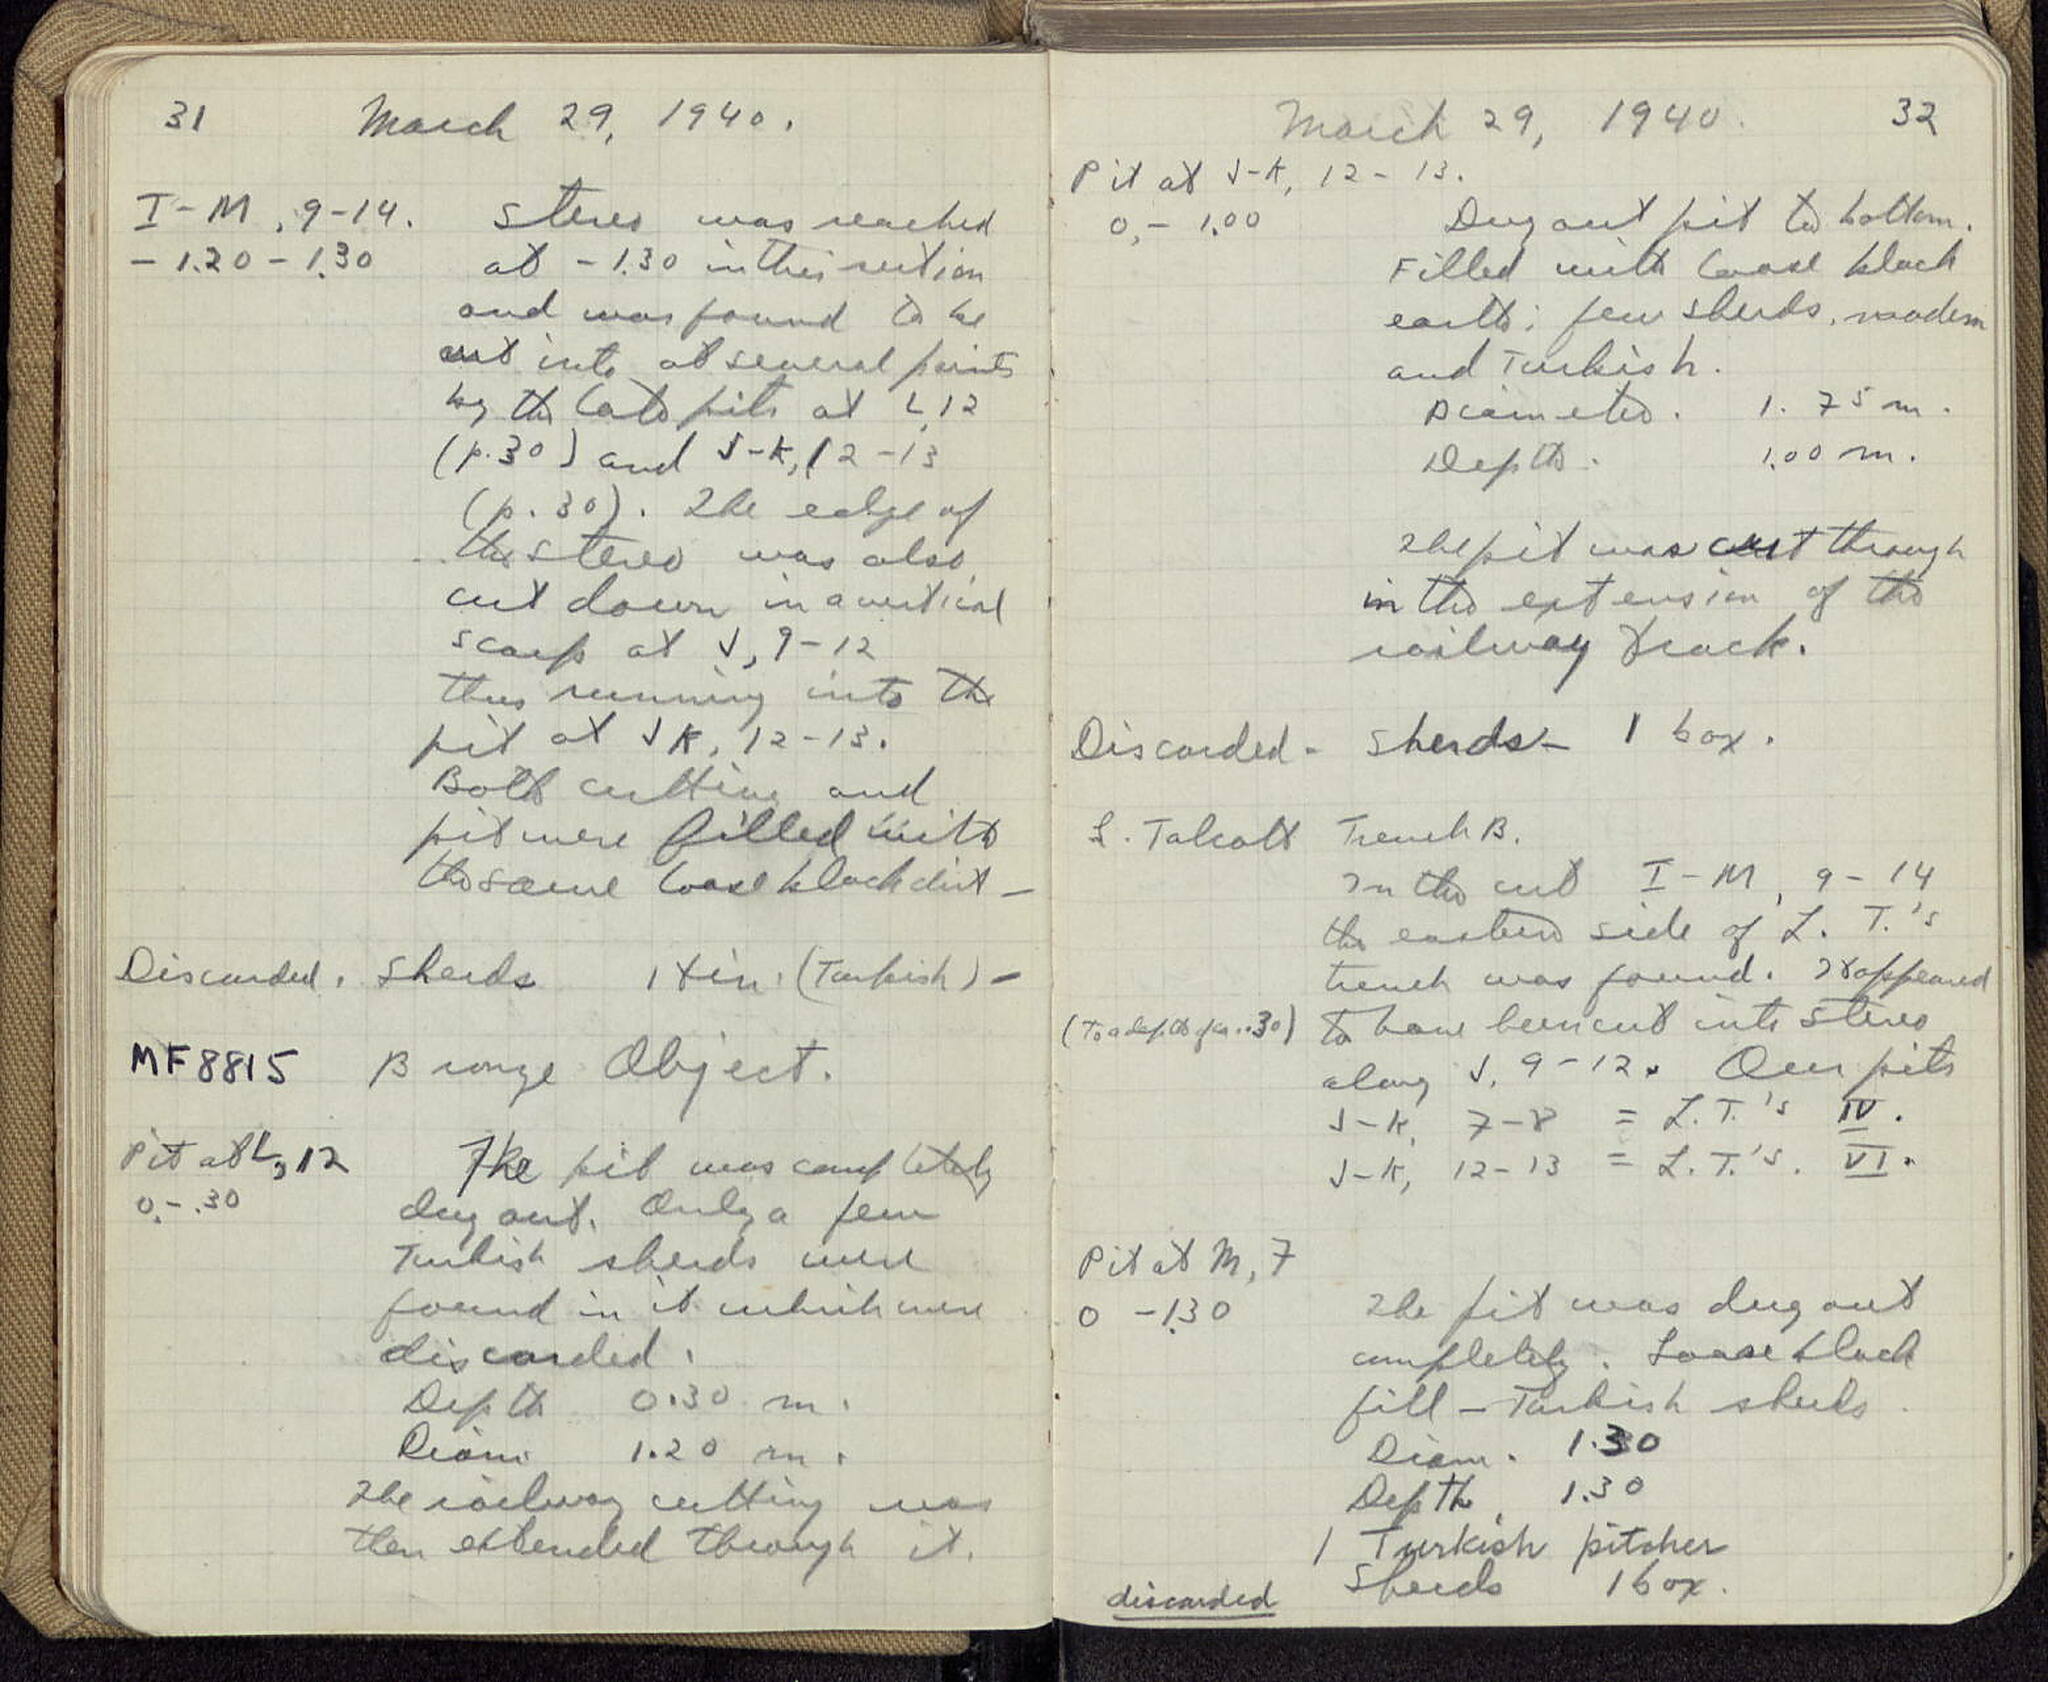 31 March 29, 1940.
I-M, 9-14. Stereo was reached
-1.20-1.30 at -1.30 in this section
and was found to be
cut into at several points
by the late pits at L,12
(p.30) and J-K, 12-13
(p.30). The edge of
the stereo was also
cut down in a vertical
scarp at J, 9-12
thus running into the
pit at JK, 12-13.
Both cutting and
pit were filled with
the same loose black dirt -
Discarded. Sherds 1 tin. (Turkish) -
MF8815 Bronze Object.
Pit at L, 12 The pit was completely
0.-.30 dug out. Only a few
Turkish sherds were
found in it which were
discarded.
Depth 0.30 m.
Diam. 1.20 m.
The railway cutting was
then extended through it.
March 29, 1940. 32
Pit at J-K, 12-13.
0,- 1.00 Dug out pit to bottom.
Filled with loose black
earth; few sherds, modern
and Turkish.
Diameter. 1.75 m.
Depth. 1.00 m.
The pit was cut through
in the extension of the
railway track.
Discarded - Sherds - 1 box.
L. Talcott Trench B.
In the cut I-M, 9-14
the eastern side of L. T.'s
trench was found. It appeared
(To a depth of ca. .30) to have been cut into stereo
along J, 9-12. Our pits
J-K, 7-8 = L.T.'s IV.
J-K, 12-13 = L.T.'s. VI.
Pit at M, 7
0 -1.30 The pit was dug out
completely. Loose black
fill - Turkish sherds.
Diam. 1.30
Depth 1.30
1 Turkish pitcher
discarded Sherds 1 box.